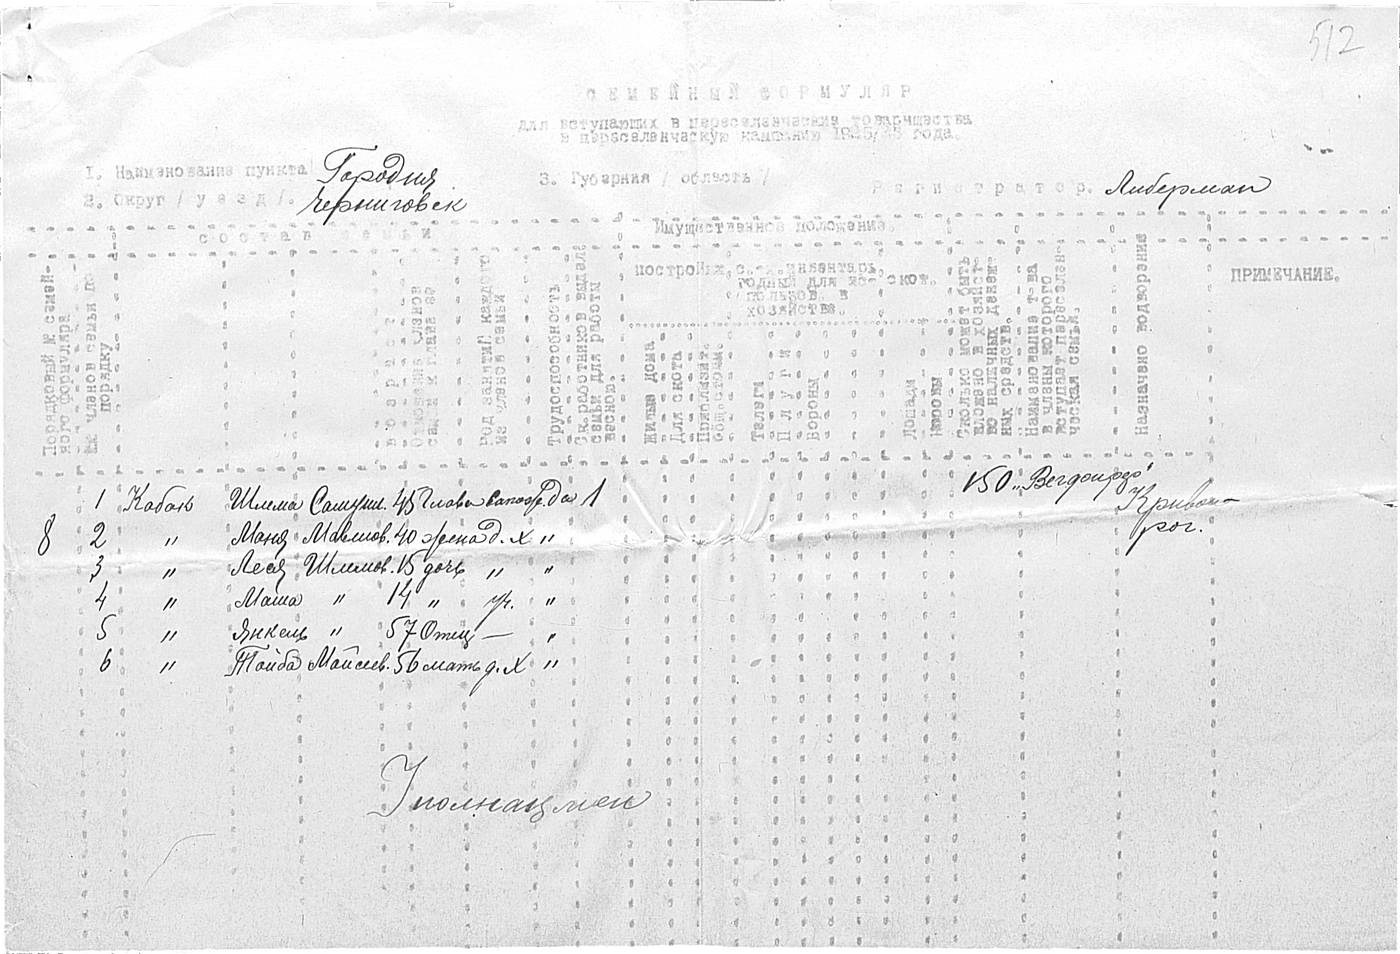 512
СЕМЕЙНЫЙ ФОРМУЛЯР
для вступающих в переселенческие товарищества
в переселенческую кампанию 1925/26 года.
1. Наименование пункта Городня
3. Губерния / область /
2. Округ / уезд /. Черниговск
Регистратор. Либерман
состав семьи
Имущественное положение.
Порядковый № семейного формуляра
№№ членов семьи по порядку
возраст
Отношение членов семьи к главе ее
Род занятий каждого из членов семьи
Трудоспособность
Ск. работников выдел. семьи для работы весною.
постройки,
с.-х. инвентарь, годный для использов. в хозяйстве.
скот.
Жилые дома
Для скота
Приблизит. общ. стоим.
Телеги
Плуги
Бороны
Лошади
Коровы
Сколько может быть вложено в хозяйство наличных денежных средств.
Наименование т-ва в члены которого вступает переселенческая семья.
Назначено водворение
ПРИМЕЧАНИЕ.
1 Кабак Шлема Самуил. 45 Глава сапож. Да 1 150 Кривой-
рог.
8 2 " Маня 40 жена д. х "
3 " Леся Шлемов. 15 дочь " "
4 " Маша " 14 " уч. "
5 " Янкель " 57 Отец — "
6 " Тойба Мойсеев. 56 мать д. х "